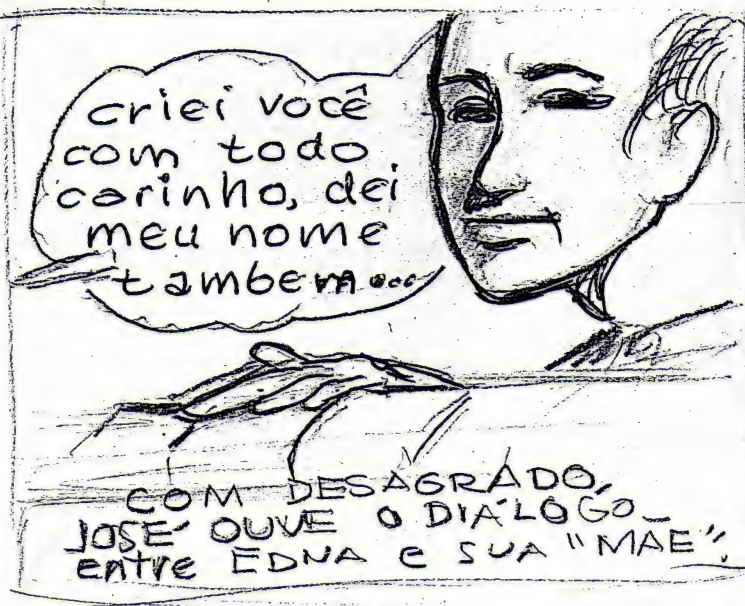 criei você
com todo
carinho, dei
meu nome
tambem...
COM DESAGRADO,
JOSÉ OUVE O DIÁLOGO_
entre EDNA e SUA "MÃE".